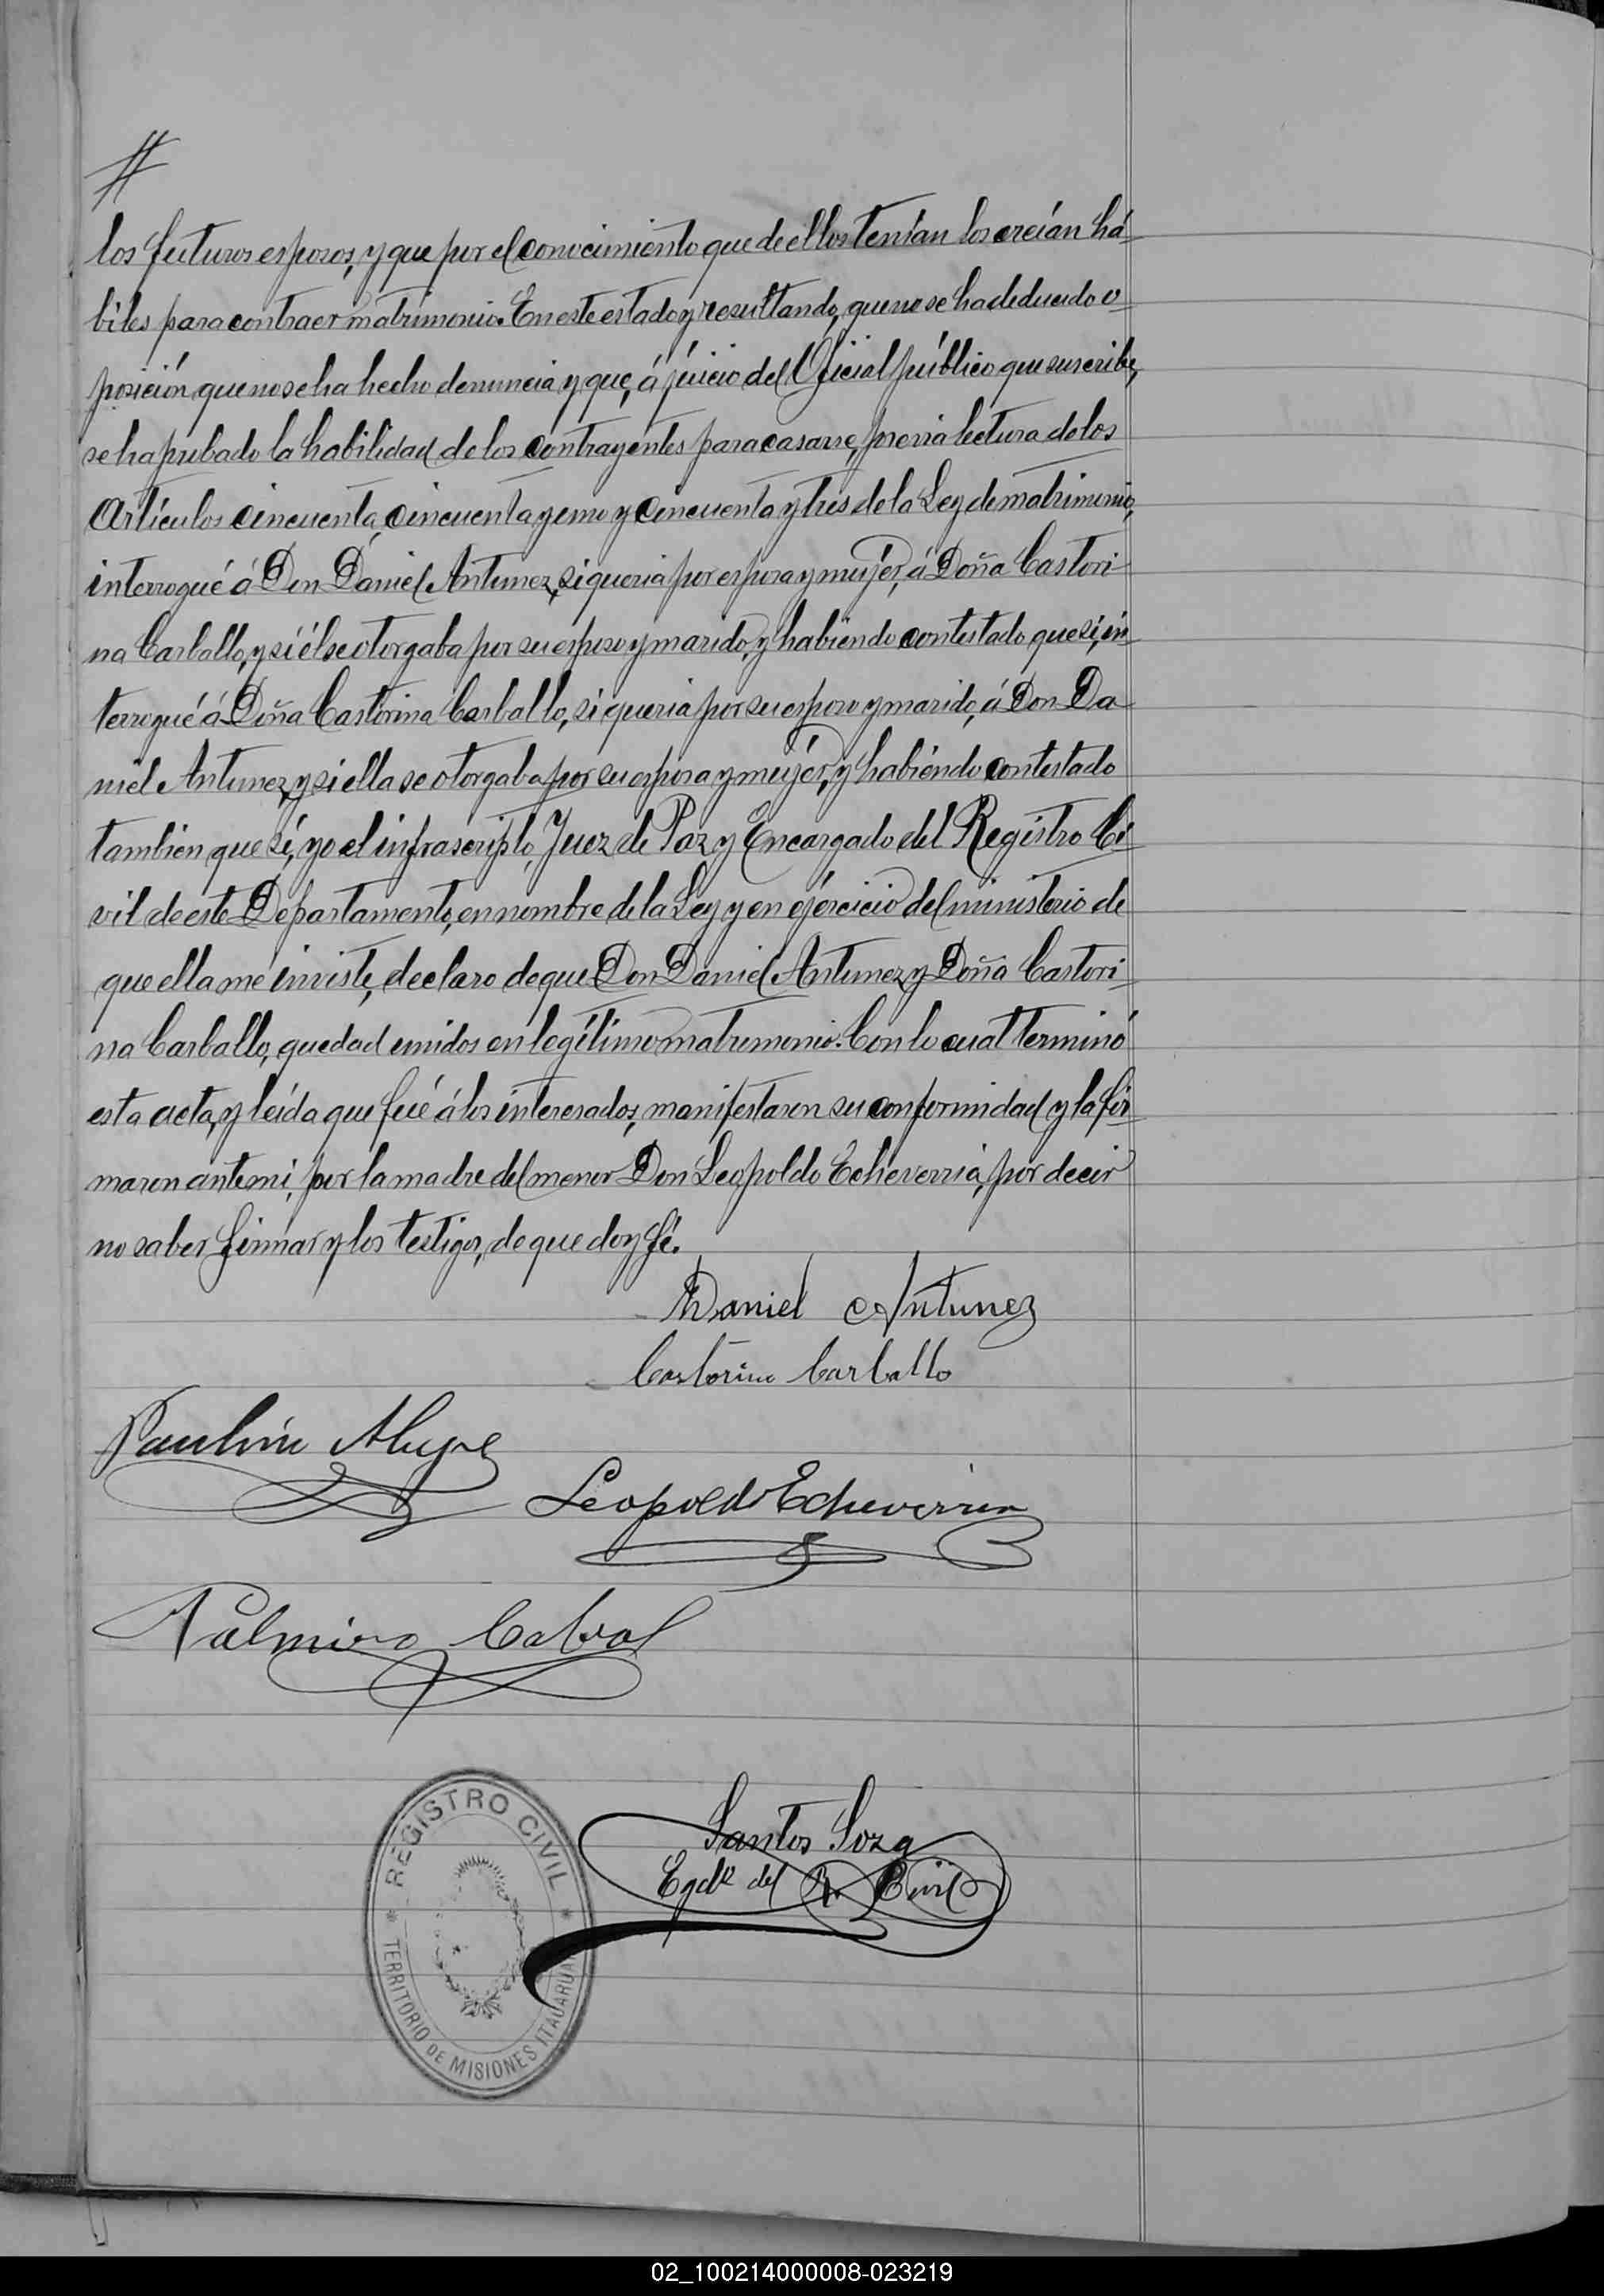 #
los futuros esposos, y que por el conocimiento que de ellos tenían los creían há-
biles para contraer matrimonio. En este estado y resultando, que no se ha deducido o-
posición, que no se ha hecho denuncia y que, á juicio del Oficial público que suscribe,
se ha probado la habilidad de los contrayentes para casarse, previa lectura de los
Artículos cincuenta, cincuenta y uno y cincuenta y tres de la Ley de matrimonio,
interrogué á Don Daniel Antunez, si queria por esposa y mujér, á Doña Castori-
na Carballo, y si él se otorgaba por su esposo y marido, y habiendo contestado que sí, in-
terrogué á Doña Castorina Carballo, si queria por su esposo y marido, á Don Da-
niel Antunez, y si ella se otorgaba por su esposa y mujér, y habiendo contestado
tambien que sí, yo el infrascripto, Juez de Paz y Encargado del Registro Ci-
vil de este Departamento, en nombre de la Ley y en ejércicio del ministerio de
que ella me inviste, declaro de que Don Daniel Antunez y Doña Castori-
na Carballo, quedad unidos en legítimo matrimonio. Con lo cual terminó
esta acta, y leída que fué á los interesados, manifestaron su conformidad y la fir-
maron ante mi, por la madre del menor Don Leopoldo Echeverria, por decir
no saber firmar y los testigos, de que doy fé.
Daniel Antunez
Castorina Carballo
Leopoldo Echeverria
Palmiro Cabral
Santos Soza
Egdo del R. Civil
REGISTRO CIVIL
TERRITORIO DE MISIONES
02_100214000008-023219